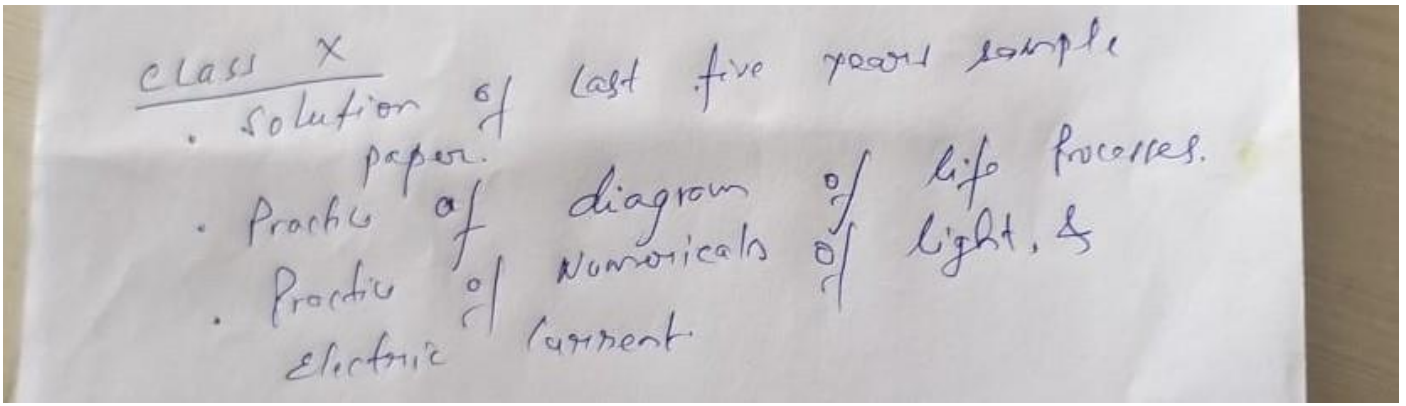 Class X
. Solution of last five years sample
paper.
. Practice of diagram of life Processes.
. Practice of Numericals of light, &
Electric Current